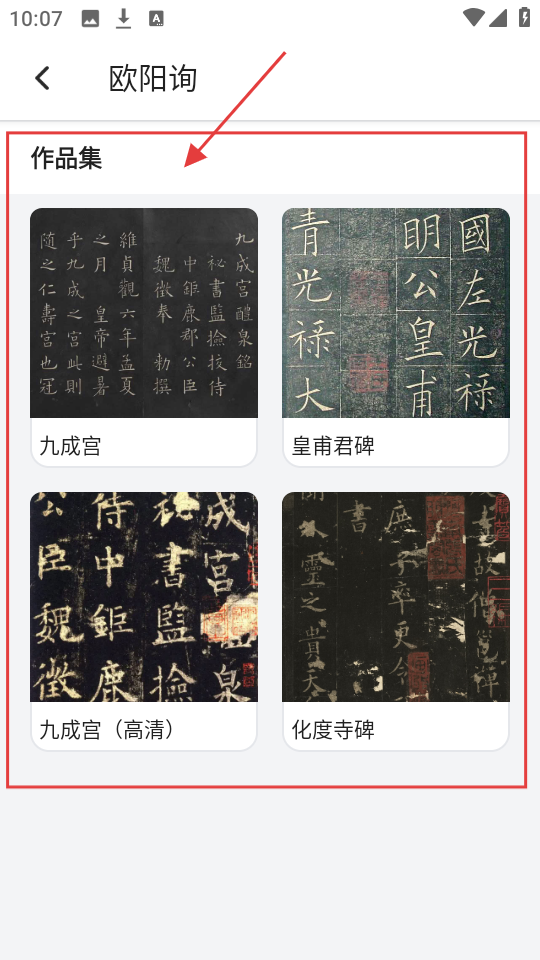 10:07
A
欧阳询
作品集
九成宫醴泉銘
祕書監撿挍侍
中鉅鹿郡公臣
魏徵奉 勅撰
維貞觀六年孟夏
之月 皇帝避暑
乎九成之宮此則
随之仁壽宮也冠
九成宫
國左光祿
明公皇甫
青光祿大
皇甫君碑
成宮泉
祕書監撿
侍中鉅鹿
公臣魏徵
九成宫（高清）
書
庶子率更令
靈之貴天
化度寺碑